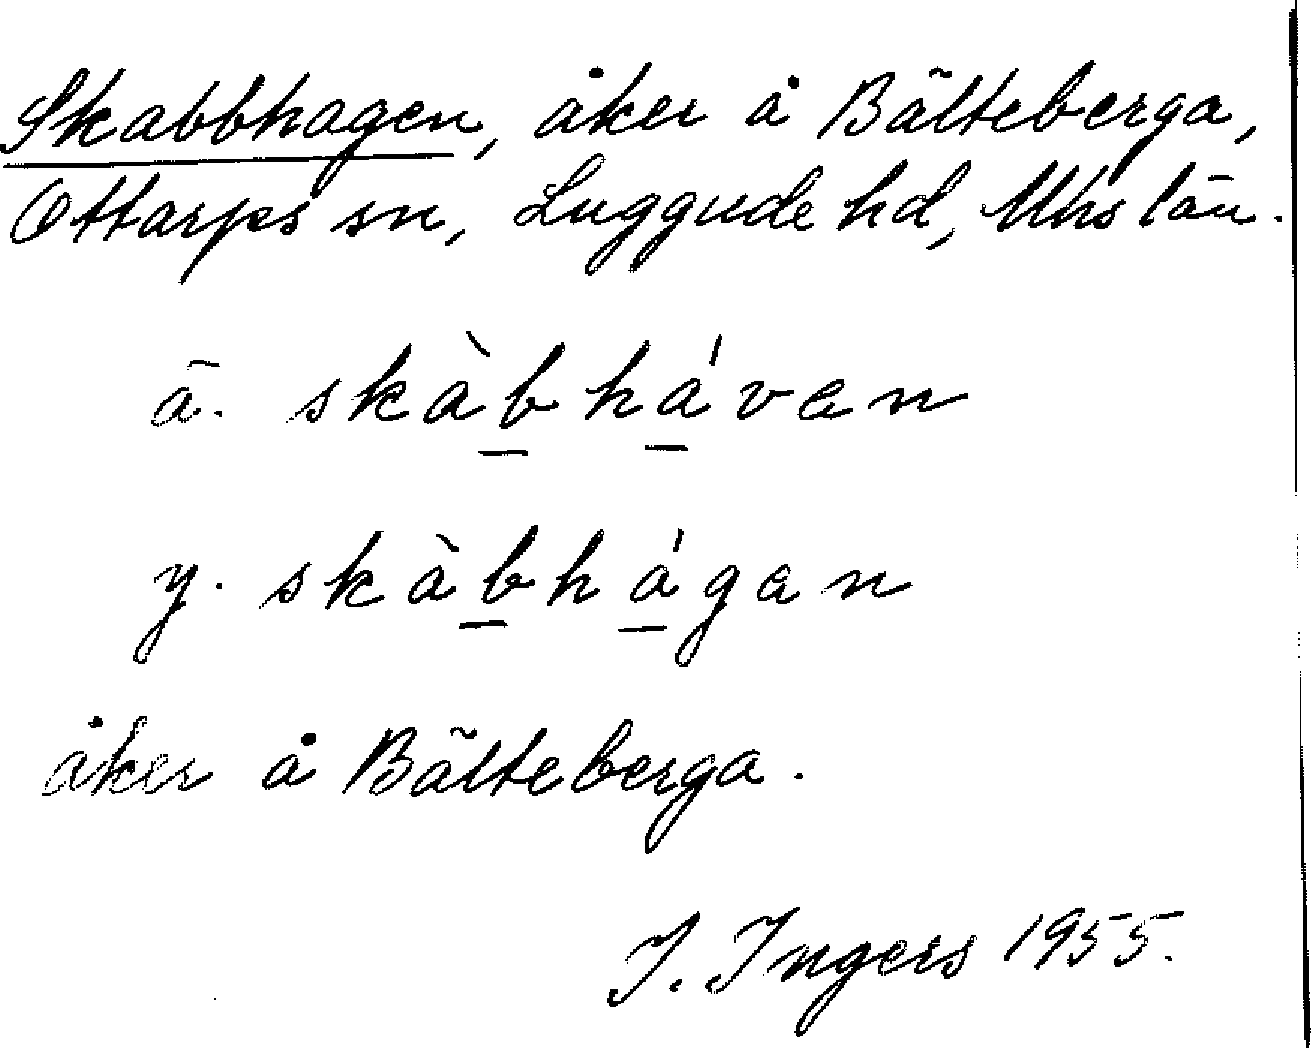 Skabbhagen, åker å Bälteberga,
Ottarps sn, Luggude hd, Mhs län.
ä. skàb̲há̲van
y. skàb̲há̲gan
åker å Bälteberga.
I. Ingers 1955.